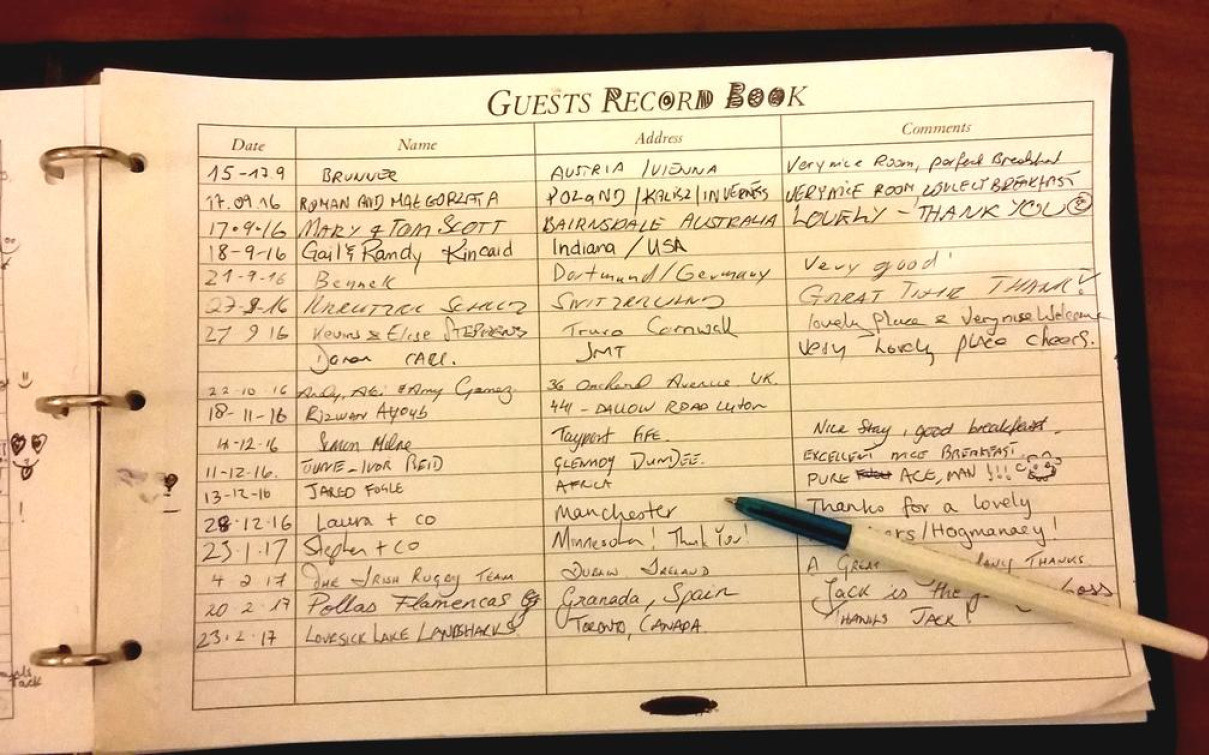 GUESTS RECORD BOOK
Date Name Address Comments
15-17.9 BRUNNER AUSTRIA / VIENNA Very nice Room, perfect Breakfast
17.09.16 ROMAN AND MAŁGORZATA POLAND / KALISZ / INVERNESS VERY NICE ROOM, LOVELLY BREAKFAST
17-9-16 MARY & TOM SCOTT BAIRNSDALE AUSTRALIA LOVELY - THANK YOU
18-9-16 Gail & Randy Kincaid Indiana / USA
21-9-16 Dortmund / Germany Very good!
27-9-16 SWITZERLAND GREAT TIME THANX!
27 9 16 Kevins & Elise STEPHENS Truro Cornwall lovely place & Very nise Welcome
CARL. JMT Very Lovely place cheers.
22-10.16 Andy, & Amy Gomez. 36 Orchard Avenue. UK.
18-11-16 RIZWAN AYOUB 441 - DALLOW ROAD Luton
4-12-16 Simon Milne Tayport FIFE. Nice Stay, good breakfast.
11-12-16. JUNE - IVOR REID DUNDEE. EXCELLENT NICE BREAKFAST.
13-12-16 JARED FOGLE AFRICA PURE ACE, MAN !!!
28.12.16 Laura + co Manchester Thanks for a lovely
23.1.17 Stephen + co Minnesota! Thank You! /Hogmanaey!
4 2 17 THE IRISH RUGBY TEAM DUBLIN IRELAND A GREAT THANKS
20.2.17 Pollas Flamencas Granada, Spain Jack is the Boss
23.2.17 LOVESICK LAKE LANDSHARKS TORONTO, CANADA. THANKS JACK!